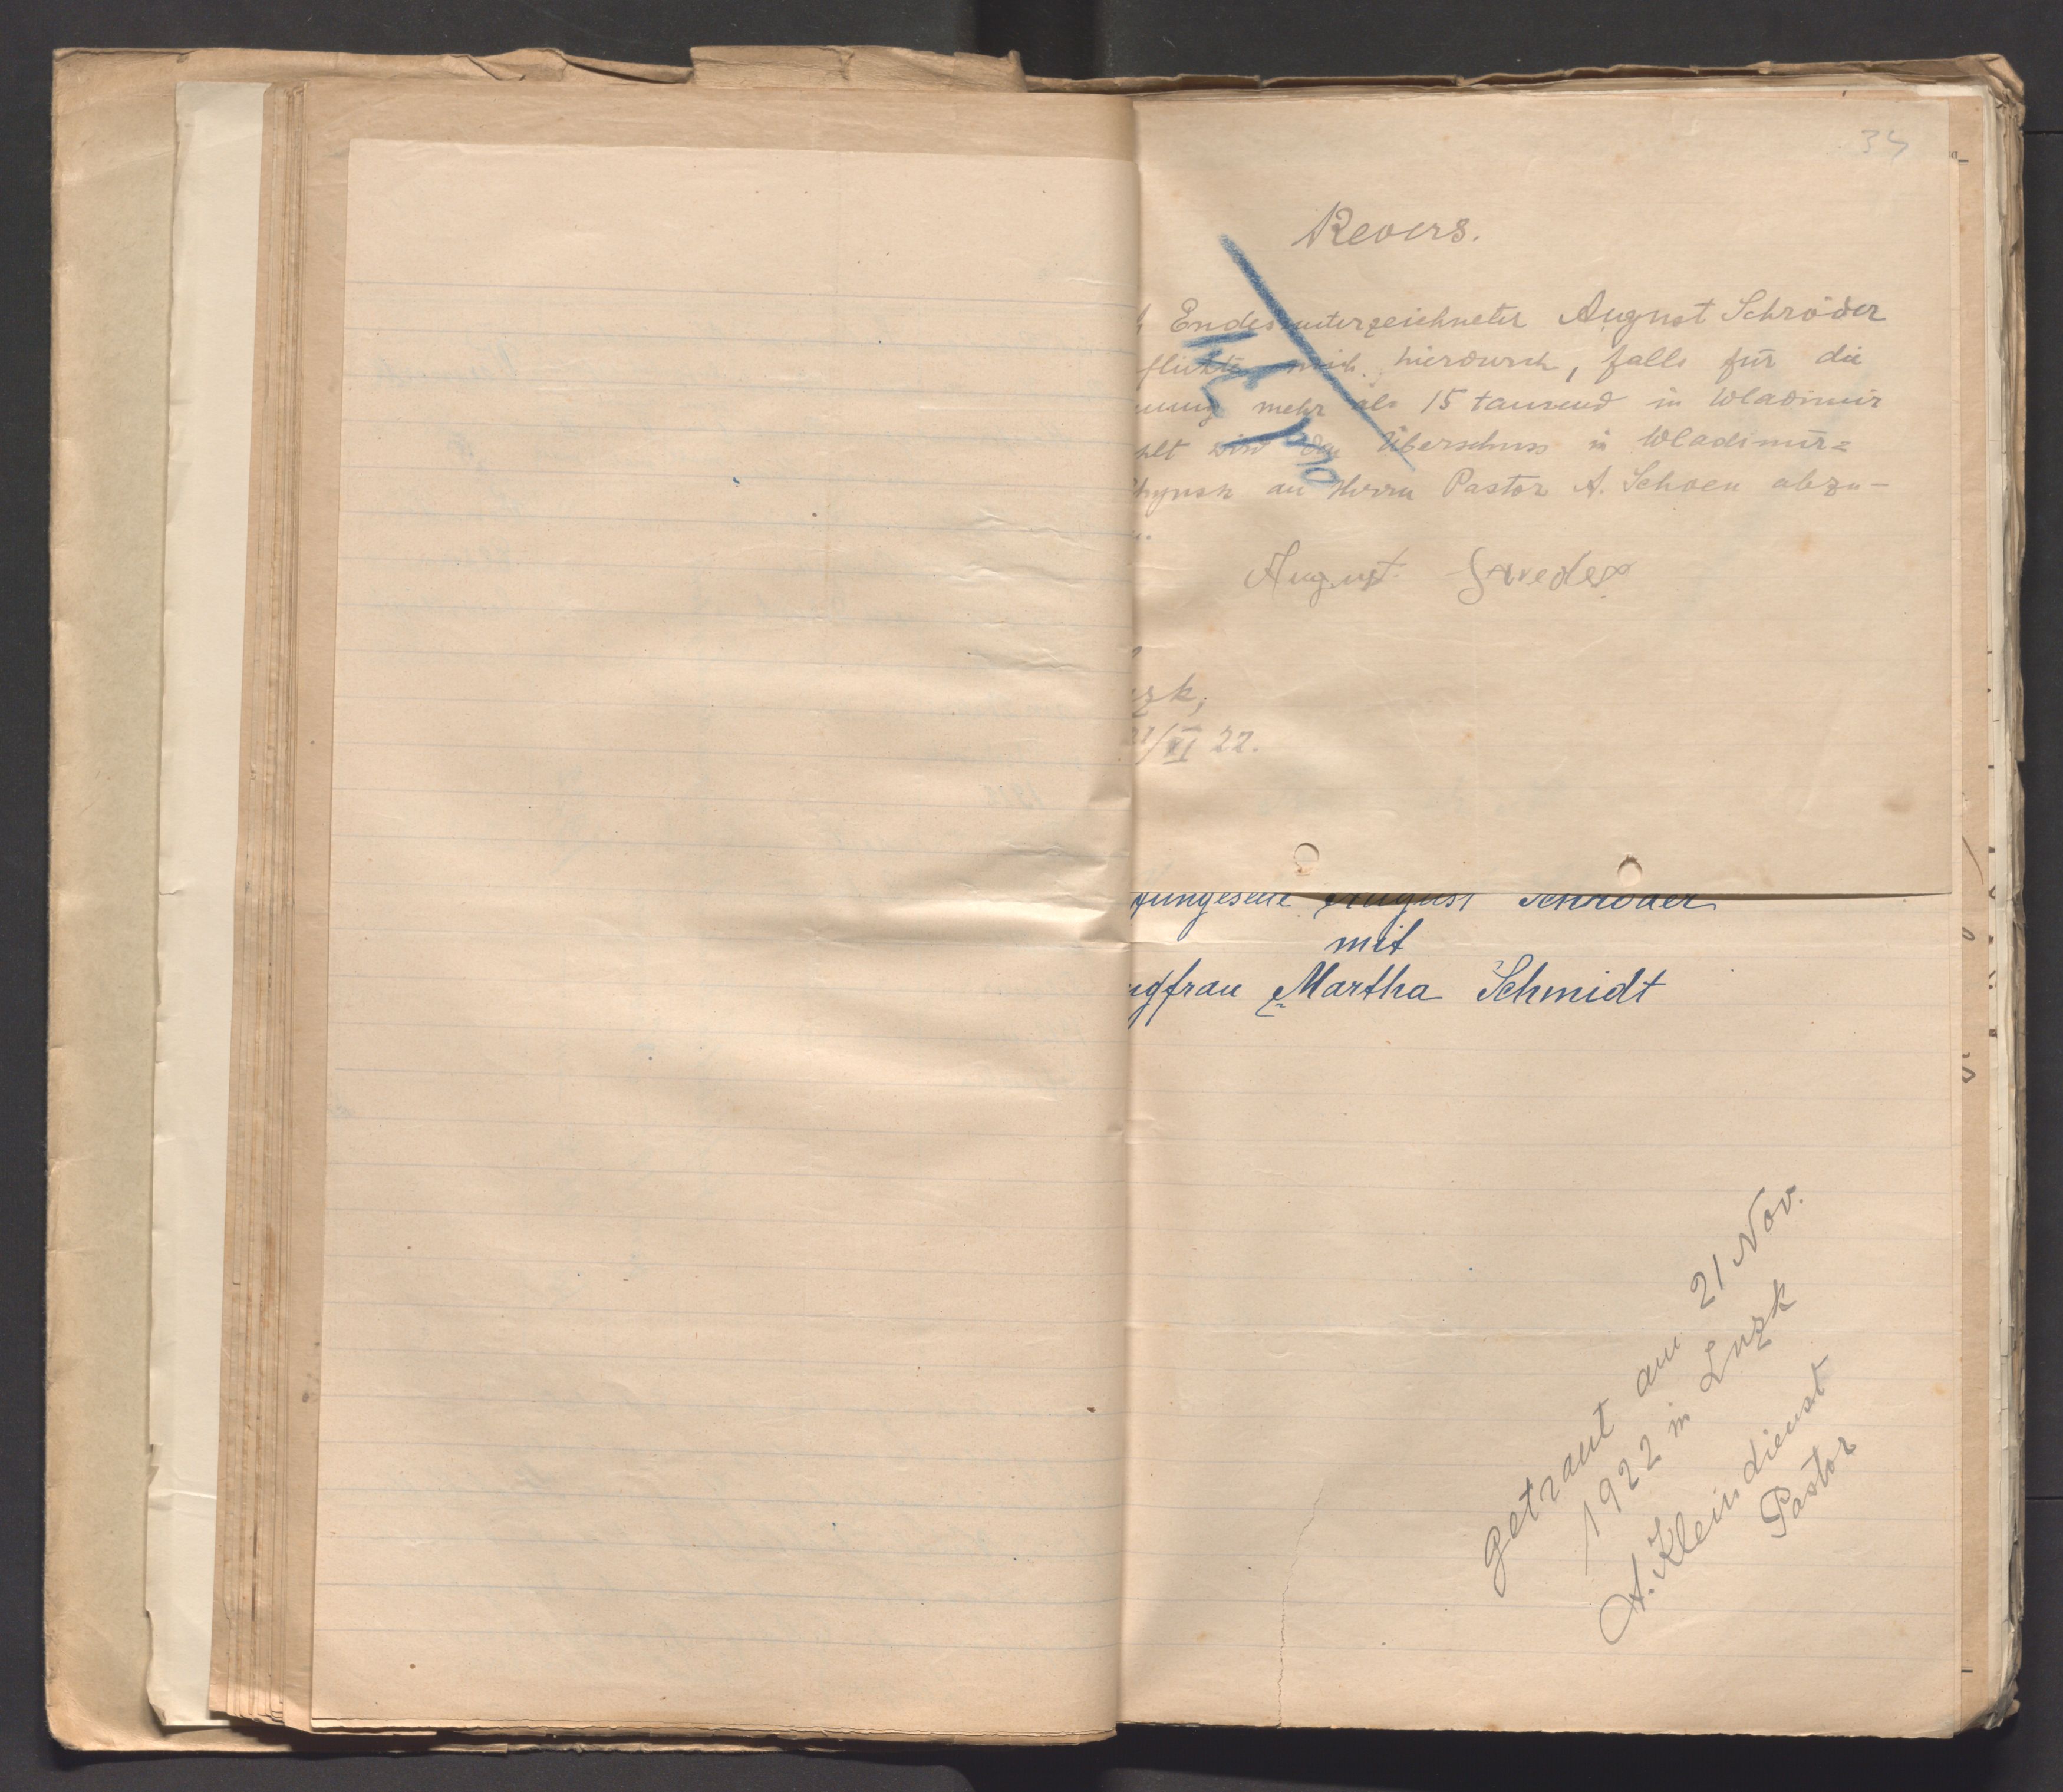 34
Revers.
Endesunterzeichneter August Schröder
flichte mich hierdurch, falls für die
uung mehr als 15 tausend in Wladimir
hlt wird den Überschuss in Wladimir=
hynsk an Herrn Pastor A. Schoen abzu-
August
zk,
21/XI 22.
Jungeselle August Schröder
mit
ngfrau Martha Schmidt
getraut am 21 Nov.
1922 in Luzk
A. Kleindienst
Pastor